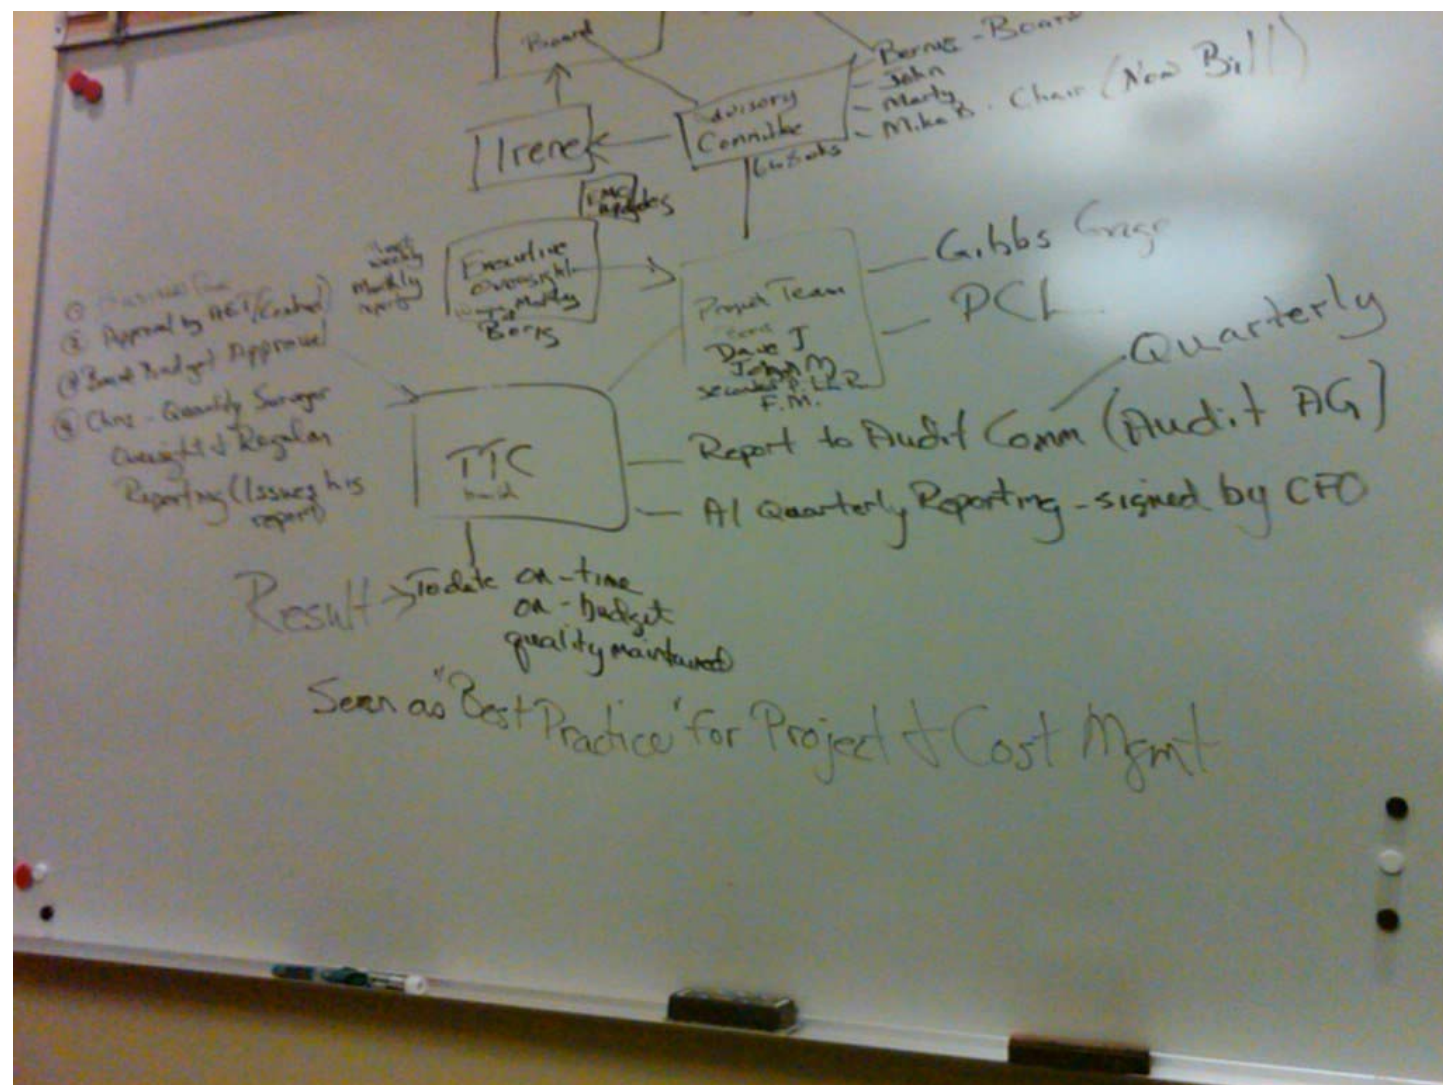 Board
Bernie - Board
John
Marty
Mike B. - Chair (Now Bill)
Advisory
Committee
Irene
EMC
updates
weekly
Monthly
report
Executive
Oversight
Boris
Project Team
Dave J
John M
F.M.
Gibbs Gage
PCL
Quarterly
Approval by
Board Budget Approval
Chris - Quantity Surveyor
Oversight & Regular
Reporting (Issues his
report)
TTC
Report to Audit Comm (Audit AG)
AI Quarterly Reporting - signed by CFO
Result → To date on-time
on-budget
quality maintained
Seen as "Best Practice" for Project & Cost Mgmt